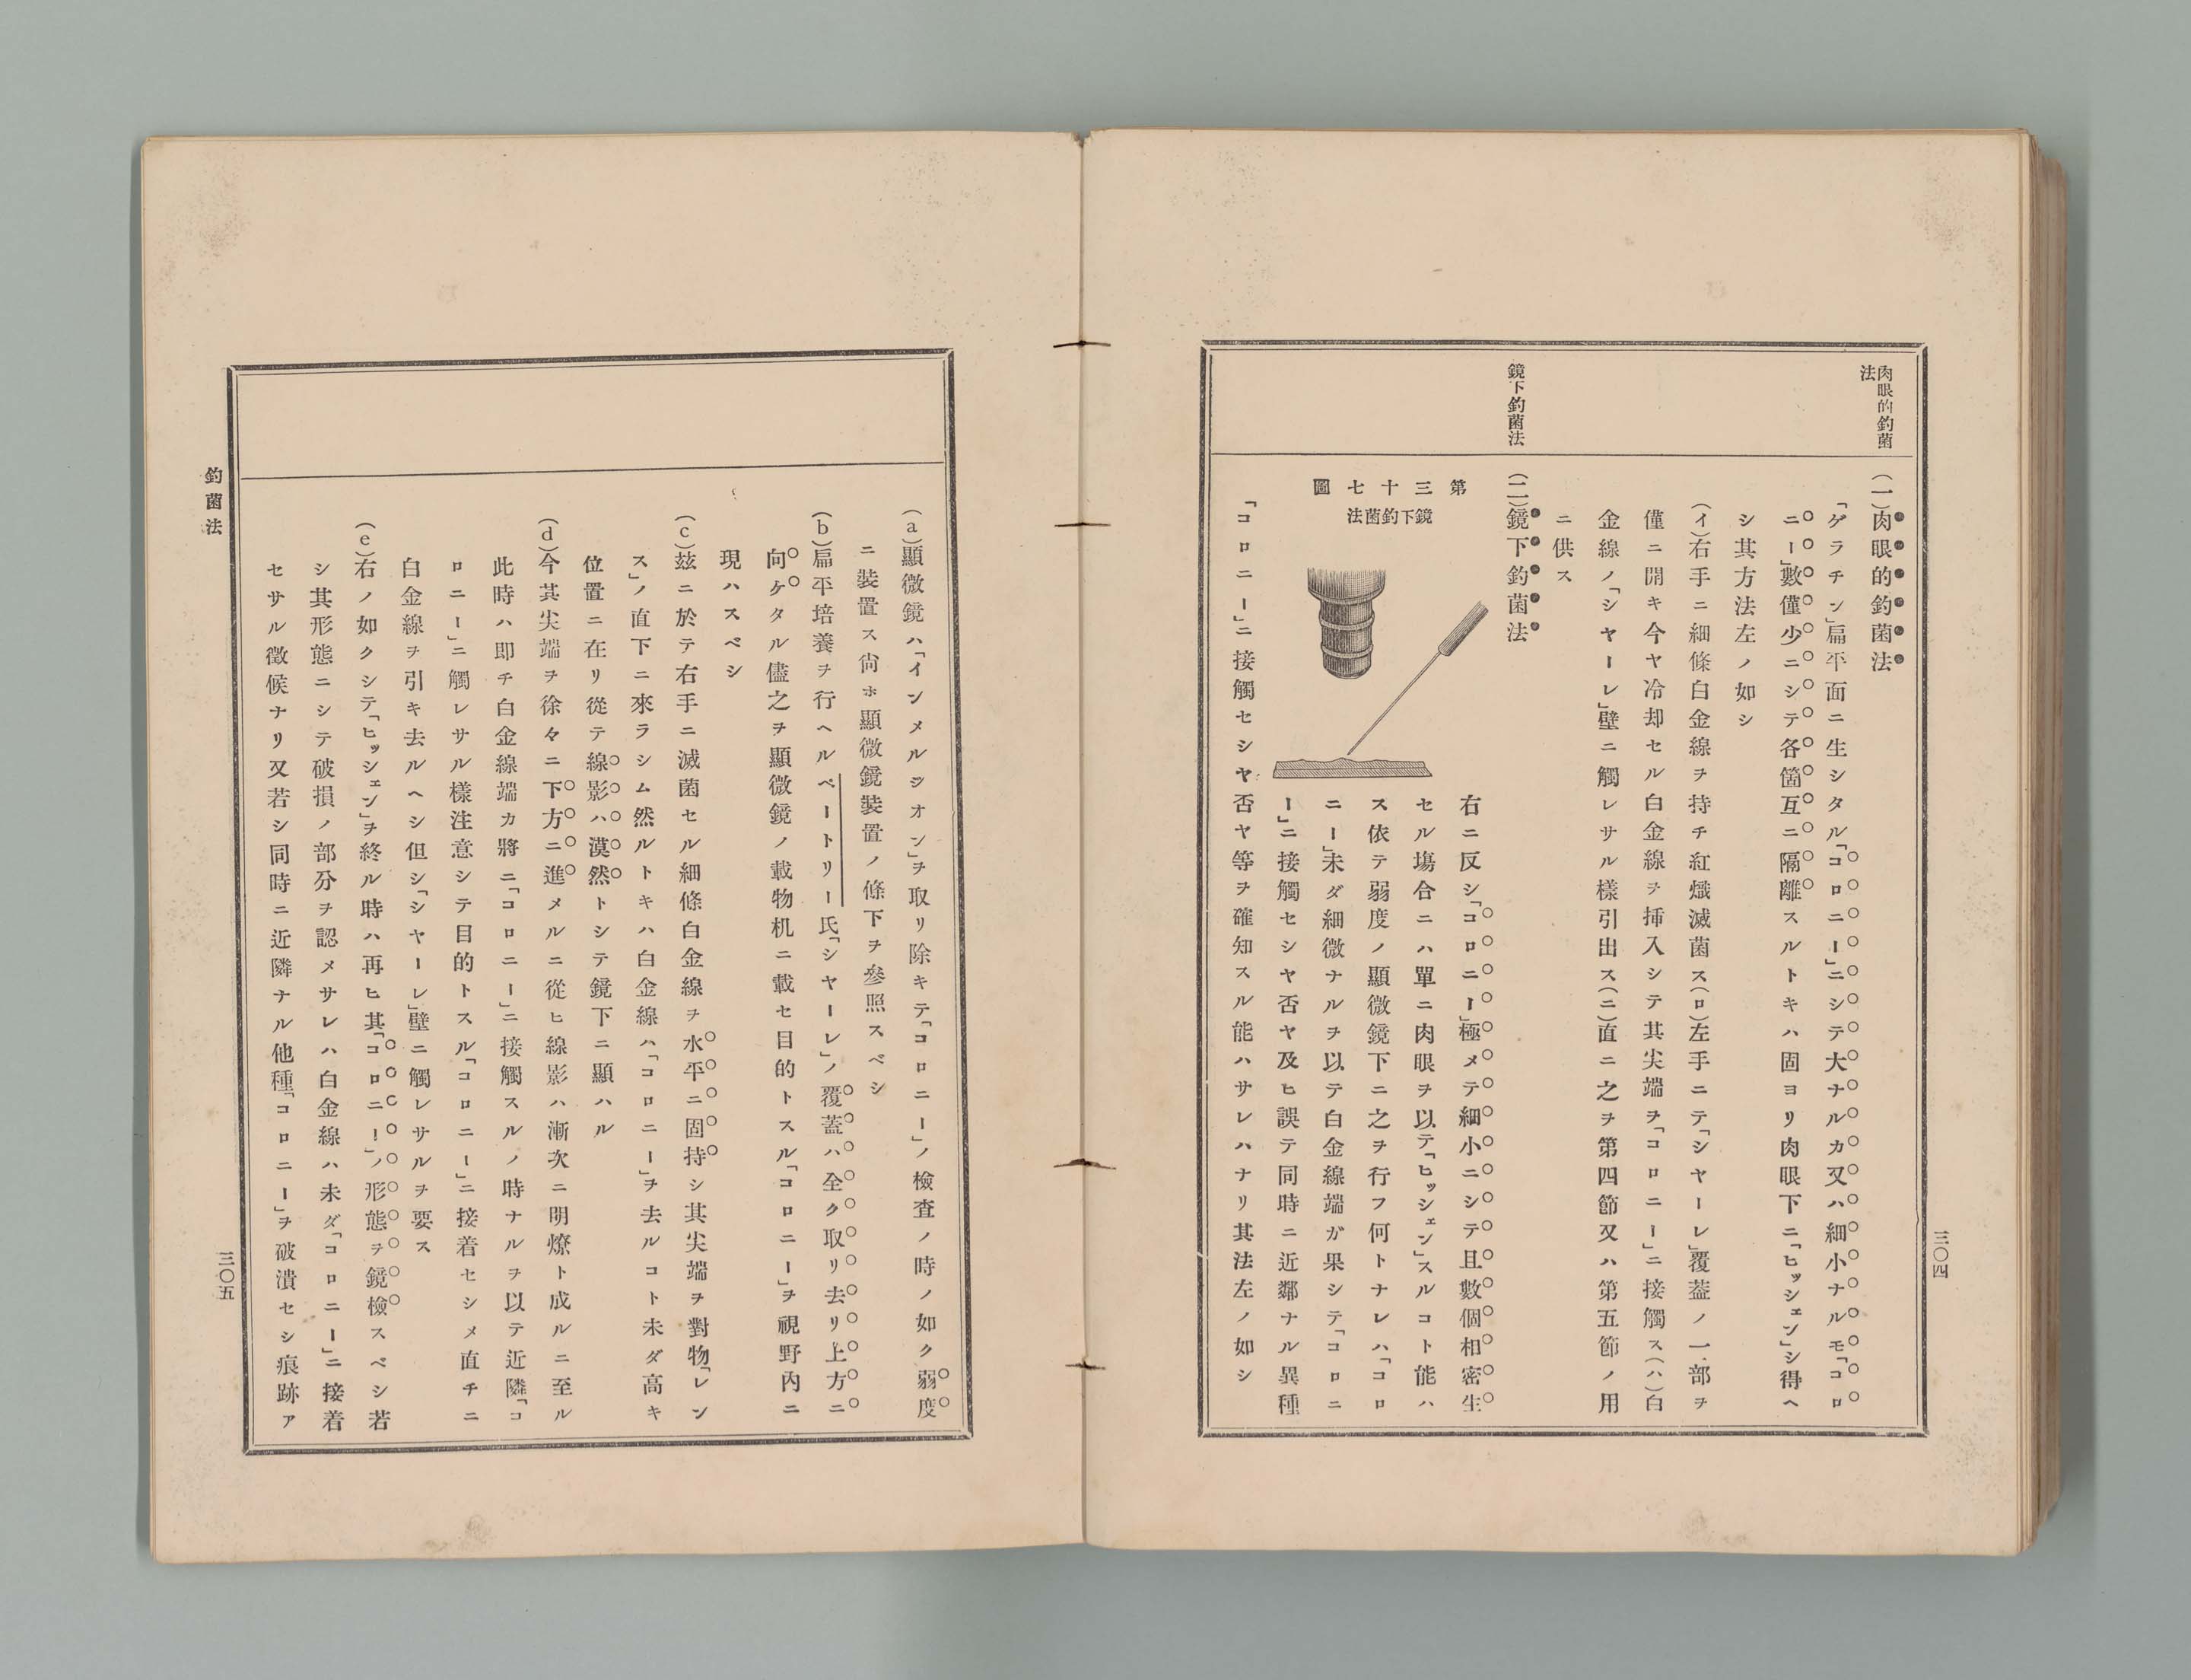 肉眼的釣菌
法
鏡下釣菌法
(一)肉眼的釣菌法
「ゲラチン」扁平面ニ生シタル「コロニー」ニシテ大ナルカ又ハ細小ナルモ「コロ
ニー」數僅少ニシテ各箇互ニ隔離スルトキハ固ヨリ肉眼下ニ「ヒッシェン」シ得ヘ
シ其方法左ノ如シ
(イ)右手ニ細條白金線ヲ持チ紅熾滅菌ス(ロ)左手ニテ「シヤーレ」覆蓋ノ一部ヲ
僅ニ開キ今ヤ冷却セル白金線ヲ挿入シテ其尖端ヲ「コロニー」ニ接觸ス(ハ)白
金線ノ「シヤーレ」壁ニ觸レサル樣引出ス(ニ)直ニ之ヲ第四節又ハ第五節ノ用
ニ供ス
(二)鏡下釣菌法
第三十七圖
鏡下釣菌法
右ニ反シ「コロニー」極メテ細小ニシテ且數個相密生
セル塲合ニハ單ニ肉眼ヲ以テ「ヒッシェン」スルコト能ハ
ス依テ弱度ノ顯微鏡下ニ之ヲ行フ何トナレハ「コロ
ニー」未ダ細微ナルヲ以テ白金線端ガ果シテ「コロニ
ー」ニ接觸セシヤ否ヤ及ヒ誤テ同時ニ近鄰ナル異種
「コロニー」ニ接觸セシヤ否ヤ等ヲ確知スル能ハサレハナリ其法左ノ如シ
三〇四
(a)顯微鏡ハ「インメルジオン」ヲ取リ除キテ「コロニー」ノ檢査ノ時ノ如ク弱度
ニ裝置ス尙ホ顯微鏡裝置ノ條下ヲ參照スベシ
(b)扁平培養ヲ行ヘルペートリー氏「シヤーレ」ノ覆蓋ハ全ク取リ去リ上方ニ
向ケタル儘之ヲ顯微鏡ノ載物机ニ載セ目的トスル「コロニー」ヲ視野內ニ
現ハスベシ
(c)玆ニ於テ右手ニ滅菌セル細條白金線ヲ水平ニ固持シ其尖端ヲ對物「レン
ス」ノ直下ニ來ラシム然ルトキハ白金線ハ「コロニー」ヲ去ルコト未ダ高キ
位置ニ在リ從テ線影ハ漠然トシテ鏡下ニ顯ハル
(d)今其尖端ヲ徐々ニ下方ニ進メルニ從ヒ線影ハ漸次ニ明燎ト成ルニ至ル
此時ハ即チ白金線端カ將ニ「コロニー」ニ接觸スルノ時ナルヲ以テ近隣「コ
ロニー」ニ觸レサル樣注意シテ目的トスル「コロニー」ニ接着セシメ直チニ
白金線ヲ引キ去ルヘシ但シ「シヤーレ」壁ニ觸レサルヲ要ス
(e)右ノ如クシテ「ヒッシェン」ヲ終ル時ハ再ヒ其「コロニー」ノ形態ヲ鏡檢スベシ若
シ其形態ニシテ破損ノ部分ヲ認メサレハ白金線ハ未ダ「コロニー」ニ接着
セサル徵候ナリ又若シ同時ニ近隣ナル他種「コロニー」ヲ破潰セシ痕跡ア
釣菌法
三〇五